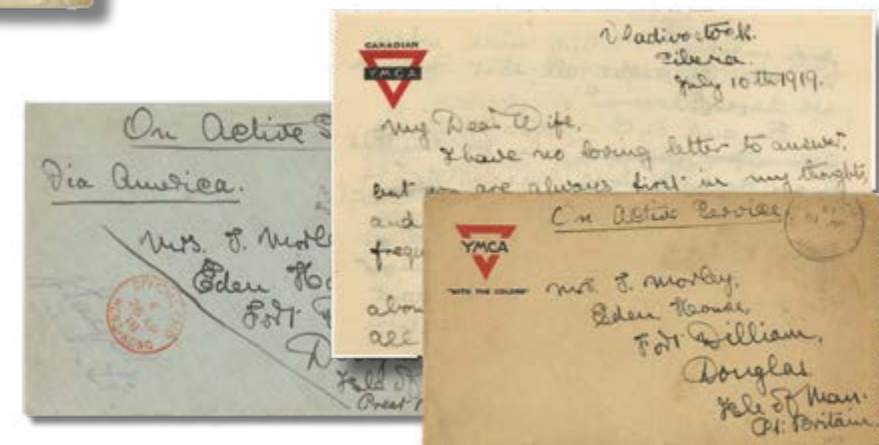 On Active
Via America.
Mrs. J. Morle
Eden Ho
Fort
D
Isle Of
Great
SPECIAL
HONG KONG
CANADIAN
YMCA
Vladivostock.
Siberia.
July 10th 1919.
My Dear Wife,
I have no loving letter to answer.
But you are always first in my thoughts,
and
frequ
abou
all
On Active Service
YMCA
"WITH THE COLORS"
Mrs. J. Morley,
Eden House,
Fort William,
Douglas
Isle Of Man.
Gt. Britain.